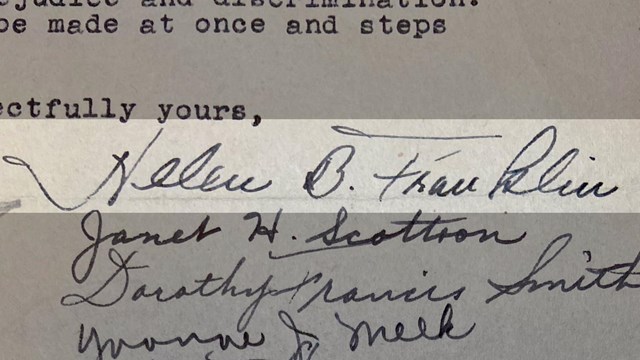 ejudice and discrimination.
be made at once and steps
ectfully yours,
Helen B. Franklin
Janet H. Scottron
Dorothy Francis Smith
Yvonne J. Meek